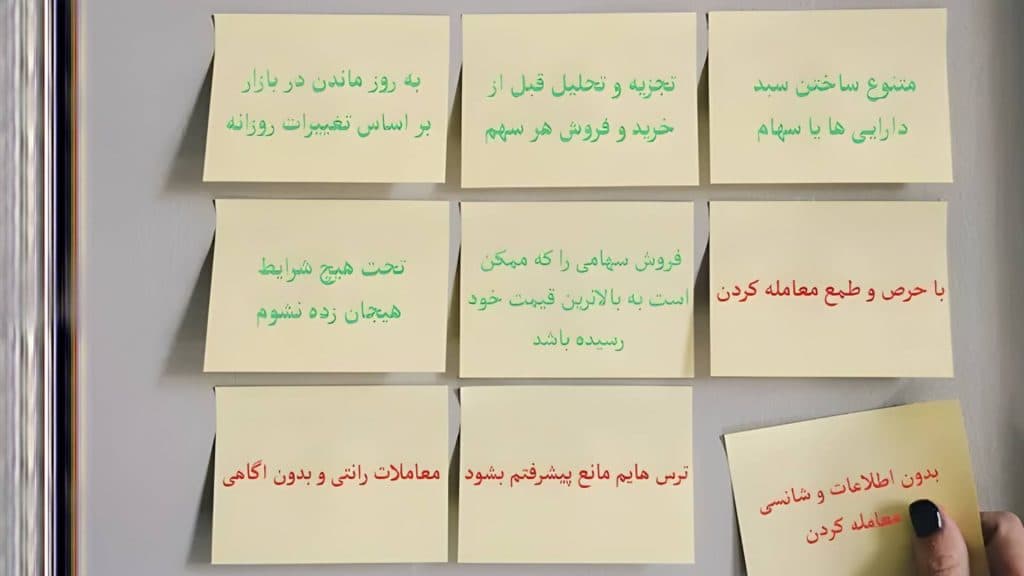 متنوع ساختن سبد
دارایی ها یا سهام
تجزیه و تحلیل قبل از
خرید و فروش هر سهم
به روز ماندن در بازار
بر اساس تغییرات روزانه
با حرص و طمع معامله کردن
فروش سهامی را که ممکن
است به بالاترین قیمت خود
رسیده باشد
تحت هیچ شرایط
هیجان زده نشوم
بدون اطلاعات و شانسی
معامله کردن
ترس هایم مانع پیشرفتم بشود
معاملات رانتی و بدون اگاهی